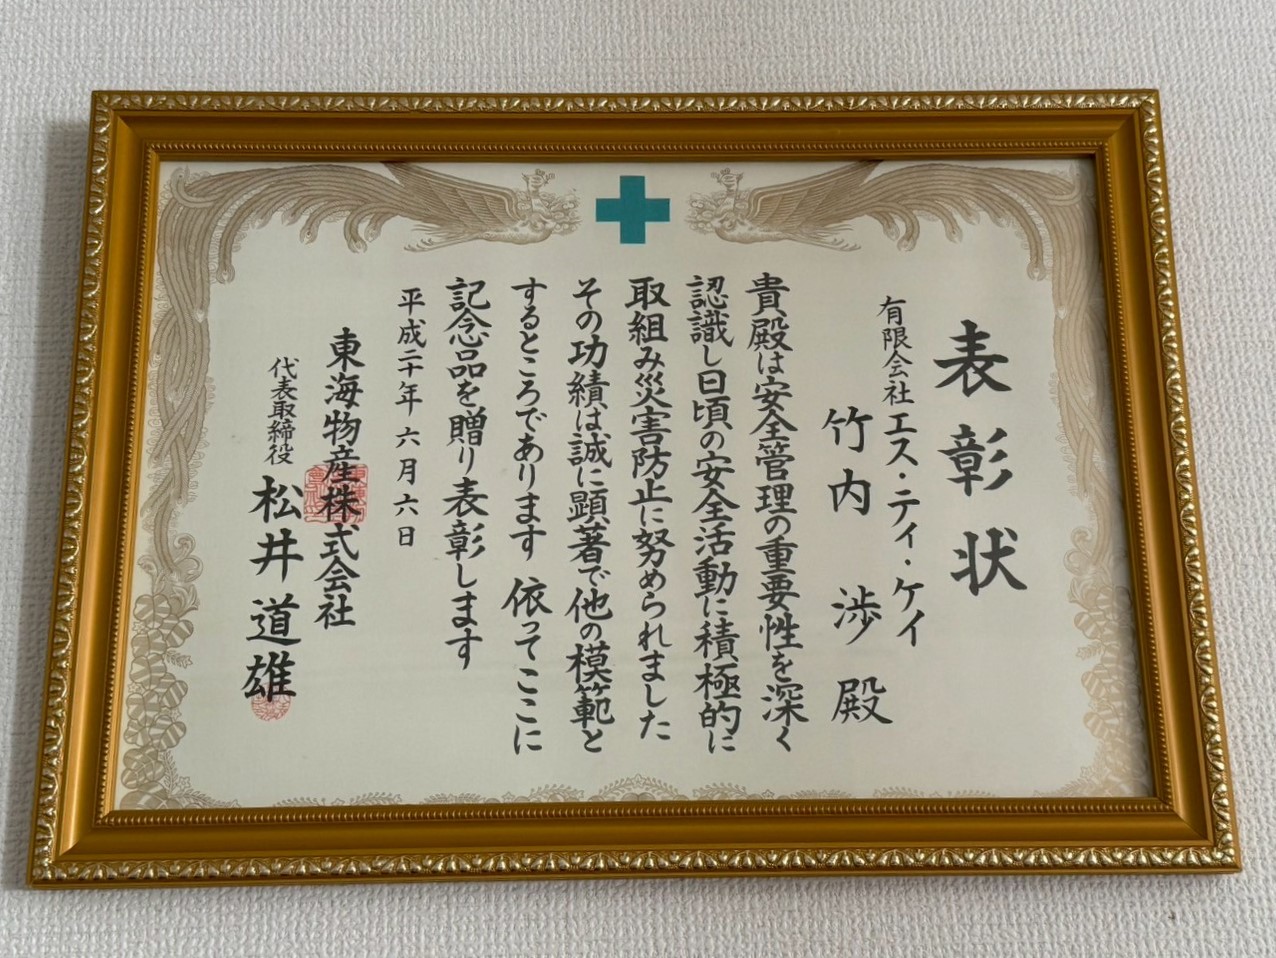 表彰状
有限会社エス・ティ・ケイ
竹内渉殿
貴殿は安全管理の重要性を深く
認識し日頃の安全活動に積極的に
取組み災害防止に努められました
その功績は誠に顕著で他の模範と
するところであります 依ってここに
記念品を贈り表彰します
平成二十年六月六日
東海物産株式会社
代表取締役 松井道雄